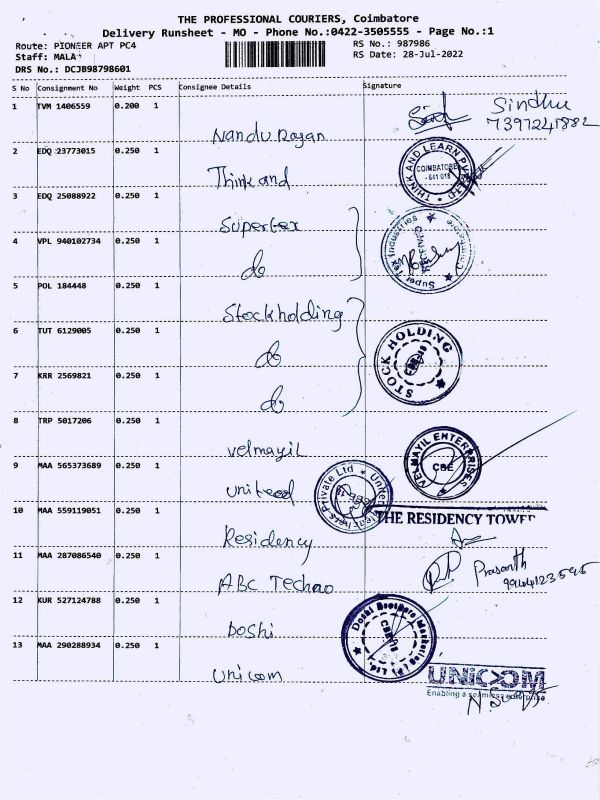 THE PROFESSIONAL COURIERS, Coimbatore
Delivery Runsheet - MO - Phone No.:0422-3505555 - Page No.:1
Route: PIONEER APT PC4 RS No.: 987986
Staff: MALA RS Date: 28-Jul-2022
DRS No.: DCJB98798601
S No Consignment No Weight PCS Consignee Details Signature
1 TVM 1406559 0.200 1
Sindhu
7397241882
Nandu Rajan
2 EDQ 23773015 0.250 1
THINK AND LEARN PVT LTD
COIMBATORE
- 641 018
Think and
3 EDQ 25088922 0.250 1
Supertex
Super Tex Industries Coimbatore
RECEIVED
4 VPL 940102734 0.250 1
do
5 POL 184448 0.250 1
Stockholding
6 TUT 6129005 0.250 1
STOCK HOLDING
do
7 KRR 2569821 0.250 1
do
8 TRP 5017206 0.250 1
VELMAYIL ENTERPRISES
CBE
velmayil
9 MAA 565373689 0.250 1
united
Private Ltd United
10 MAA 559119051 0.250 1
THE RESIDENCY TOWER
Residency
11 MAA 287086540 0.250 1
Prasanth
ABC Techno
12 KUR 527124788 0.250 1
Doshi Brothers Marketing (P) Ltd.
Doshi
13 MAA 290288934 0.250 1
Unicom
UNICOM
Enabling a seamless enterprise